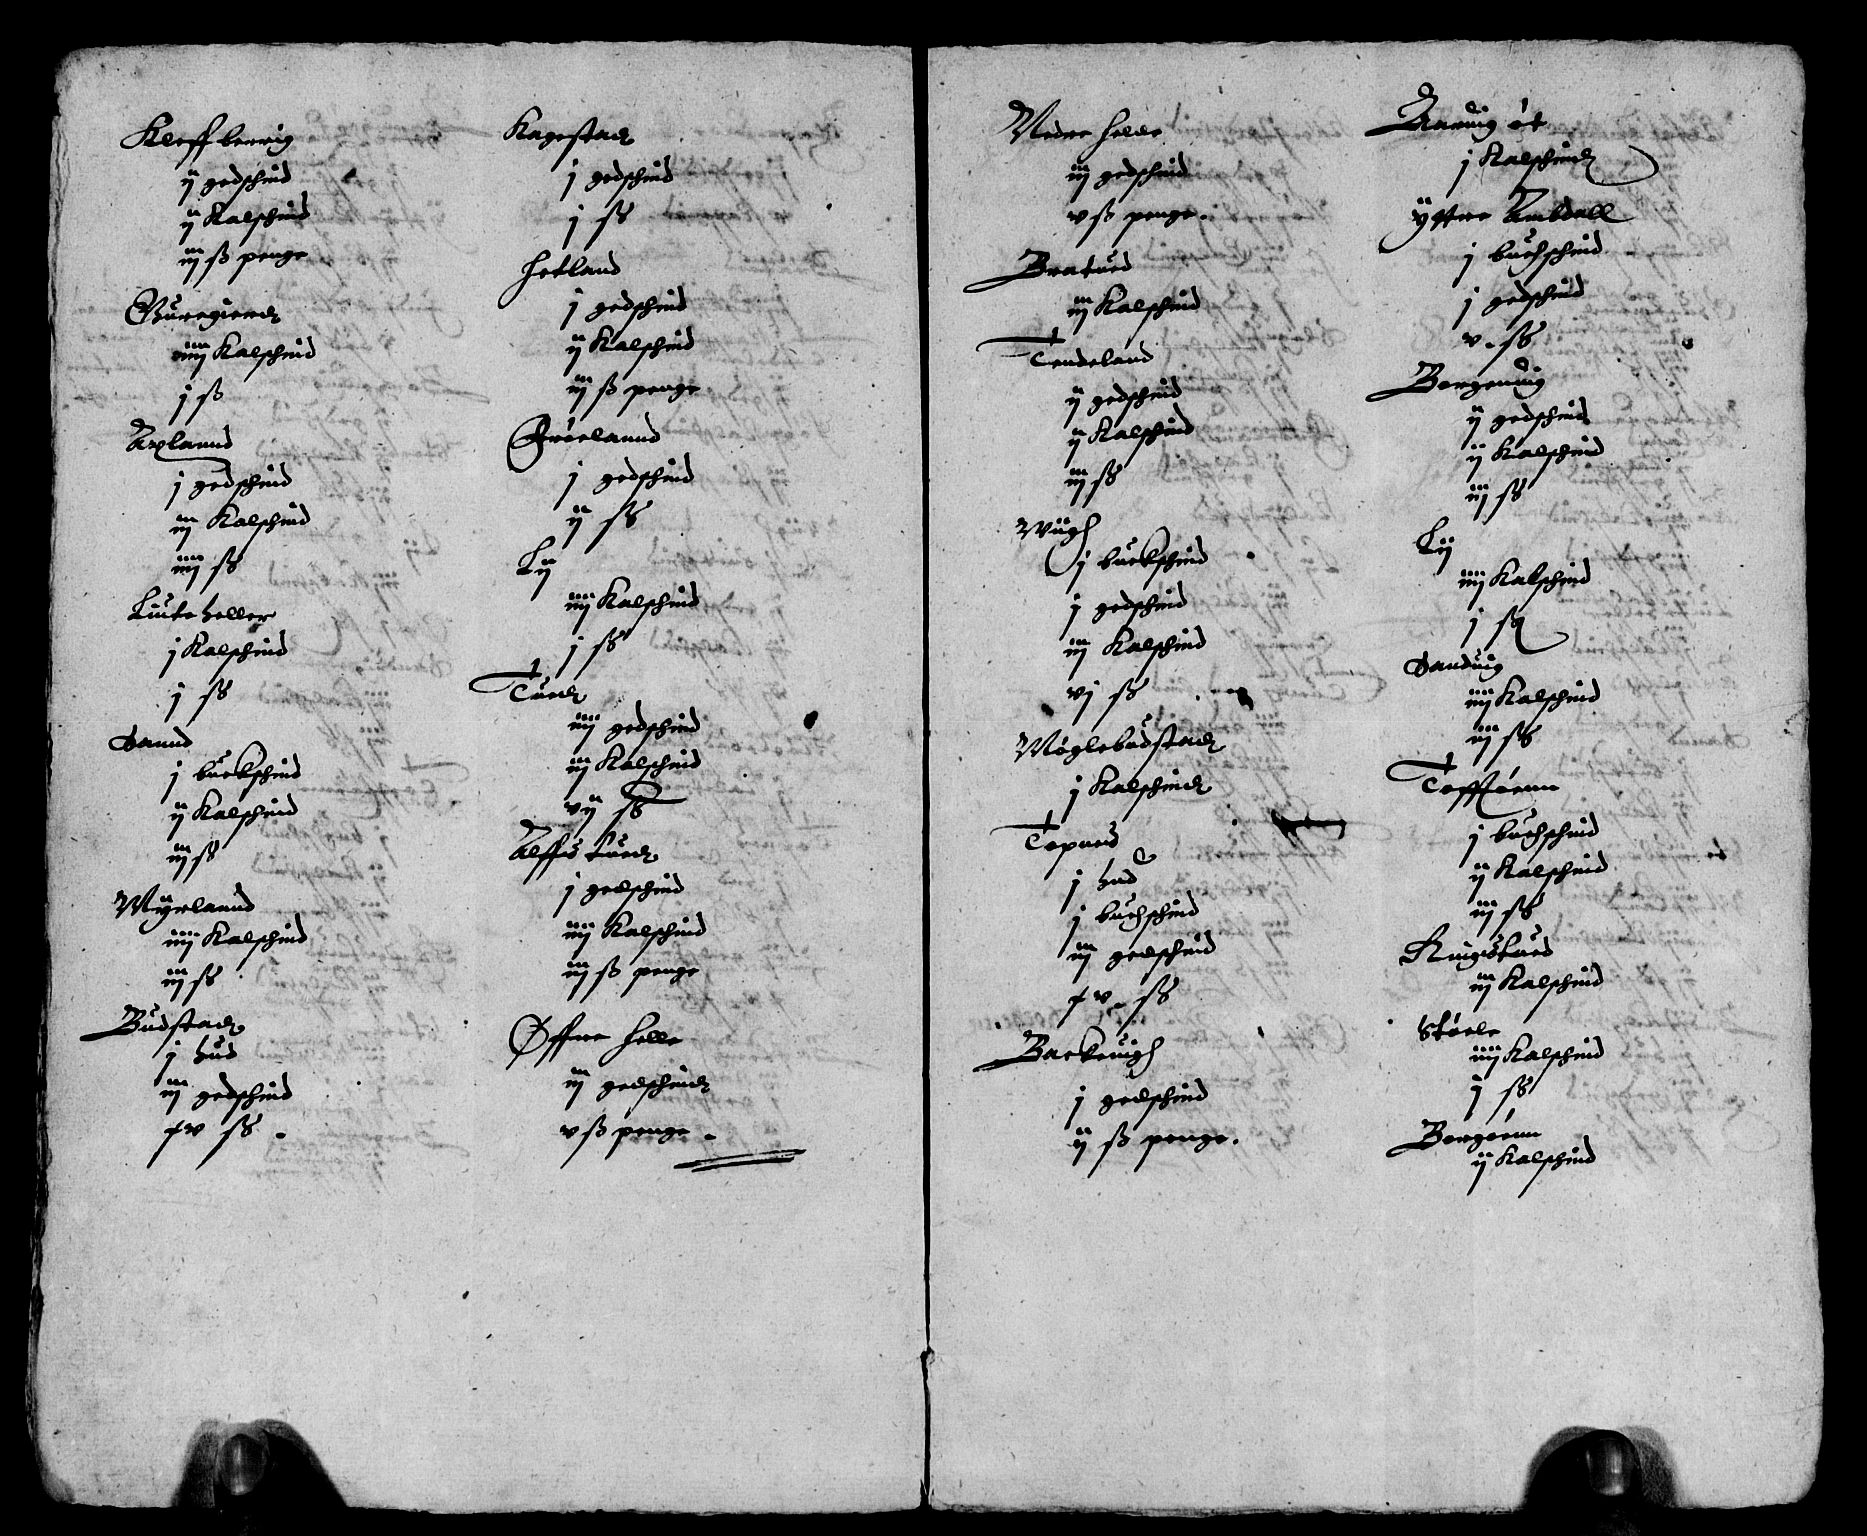 Kleffberrig
ij gedschind
ij Kalschind
iij ß penge
Buregierdt
iiij Kalschind
j ß
Axland
j gedschind
iij Kalschind
iiij ß
Luite heller
j Kalschind
j ß
Sannd
j buckschind
ij Kalschind
iij ß
Myrland
iiij Kalschind
iij ß
Budstadt
j hud
iij gedschind
xv ß
Kagestad
j gedschind
j ß
Hetland
j gedschind
ij Kalschind
iij ß penge
Frøeland
j gedschind
ij ß
Ly
iiij Kalschind
j ß
Tuedt
iiij gedschind
iij Kalschind
vij ß
Alffis tuedt
j gedschind
iiij Kalschind
iij ß penge
Øffre Helle
iij gedschindt
v ß penge
Nedre Helle
iij gedschind
v ß penge
Bratued
iij Kalschind
Tendeland
ij gedschind
ij Kalschind
iij ß
Wiigh
j buckschind
j gedschind
iij Kalschind
vj ß
Møglebudstadt
j Kalschindt
Topnes
j hud
j buchschind
iij gedschind
xv ß
Barkeuigh
j gedschind
ij ß penge
Aaeuig øe
j Kalschindt
Yttre Ambdall
j buchschind
j gedschind
v ß
Borgeuiig
ij gedschind
ij Kalschind
iij ß
Ly
iiij Kalschind
j ß
Sanduig
iiij Kalschind
iij ß
Tofftøenn
j buchschind
ij Kalschind
iij ß
Ringstued
iij Kalschind
Støele
iiij Kalschind
j ß
Borgøenn
ij Kalschind